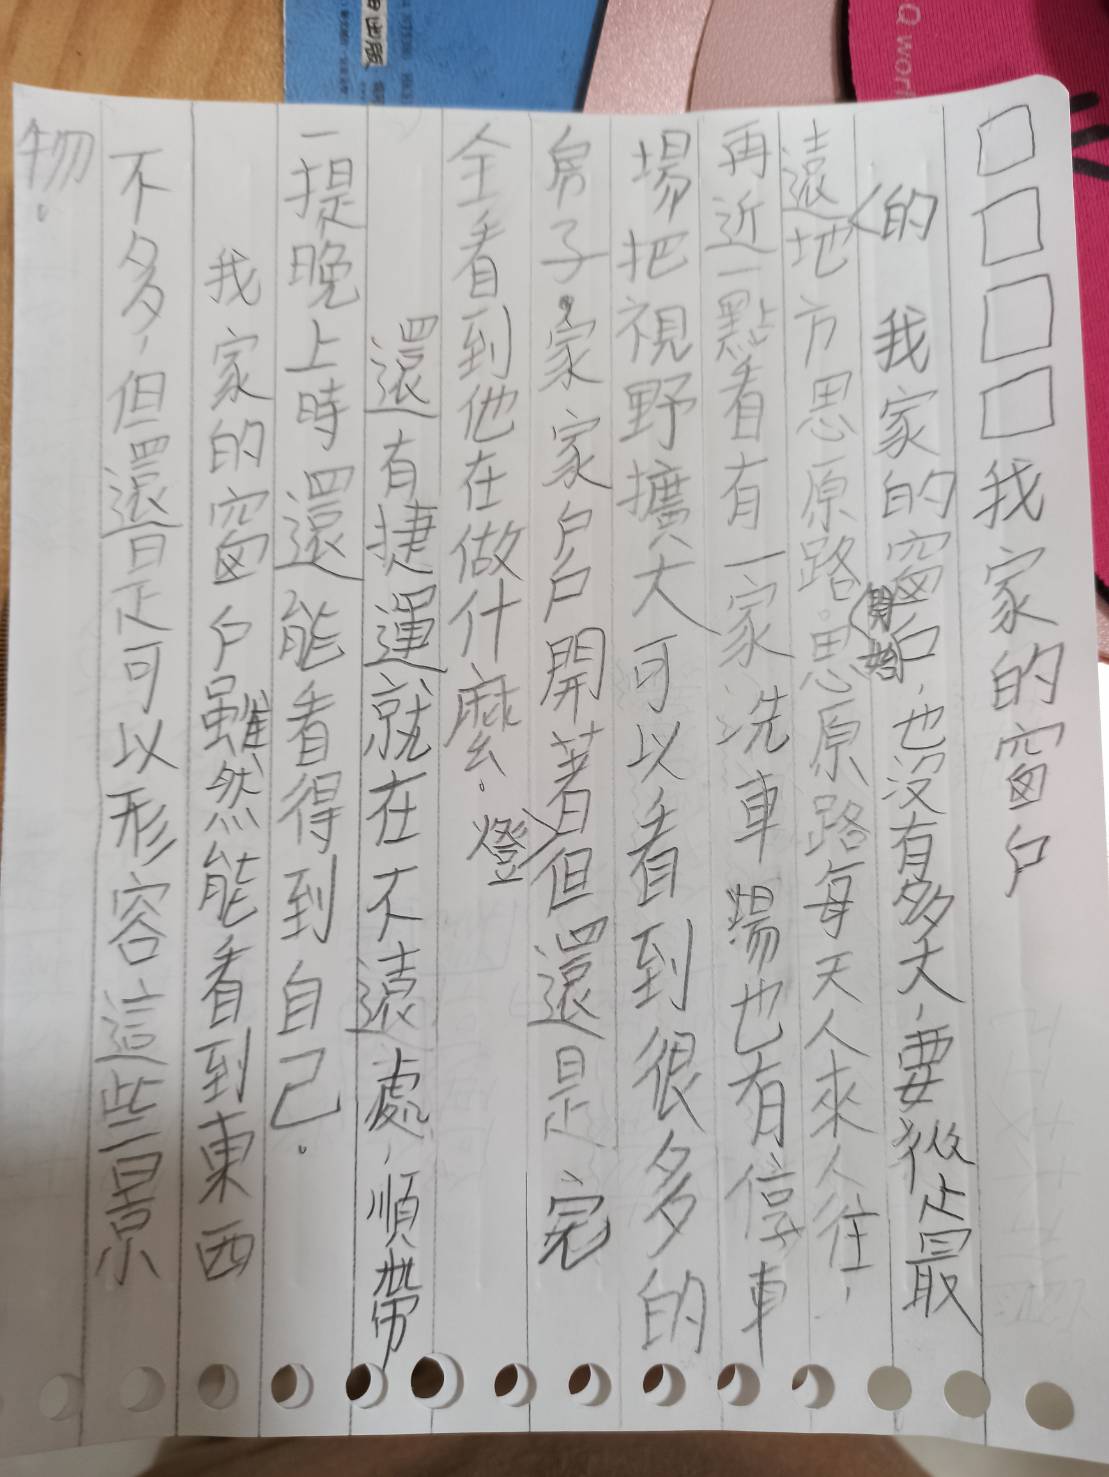 □□□□我家的窗戶
我家的窗戶,也沒有多大,要從最
遠的地方思原路開始。思原路每天人來人往,
再近一點看有一家洗車場也有停車
場把視野擴大可以看到很多的
房子。家家戶戶開著燈但還是完
全看到他在做什麼。
還有捷運就在不遠處,順帶
一提晚上時還能看得到自己。
我家的窗戶雖然能看到東西
不多,但還是可以形容這些景
物。
出版